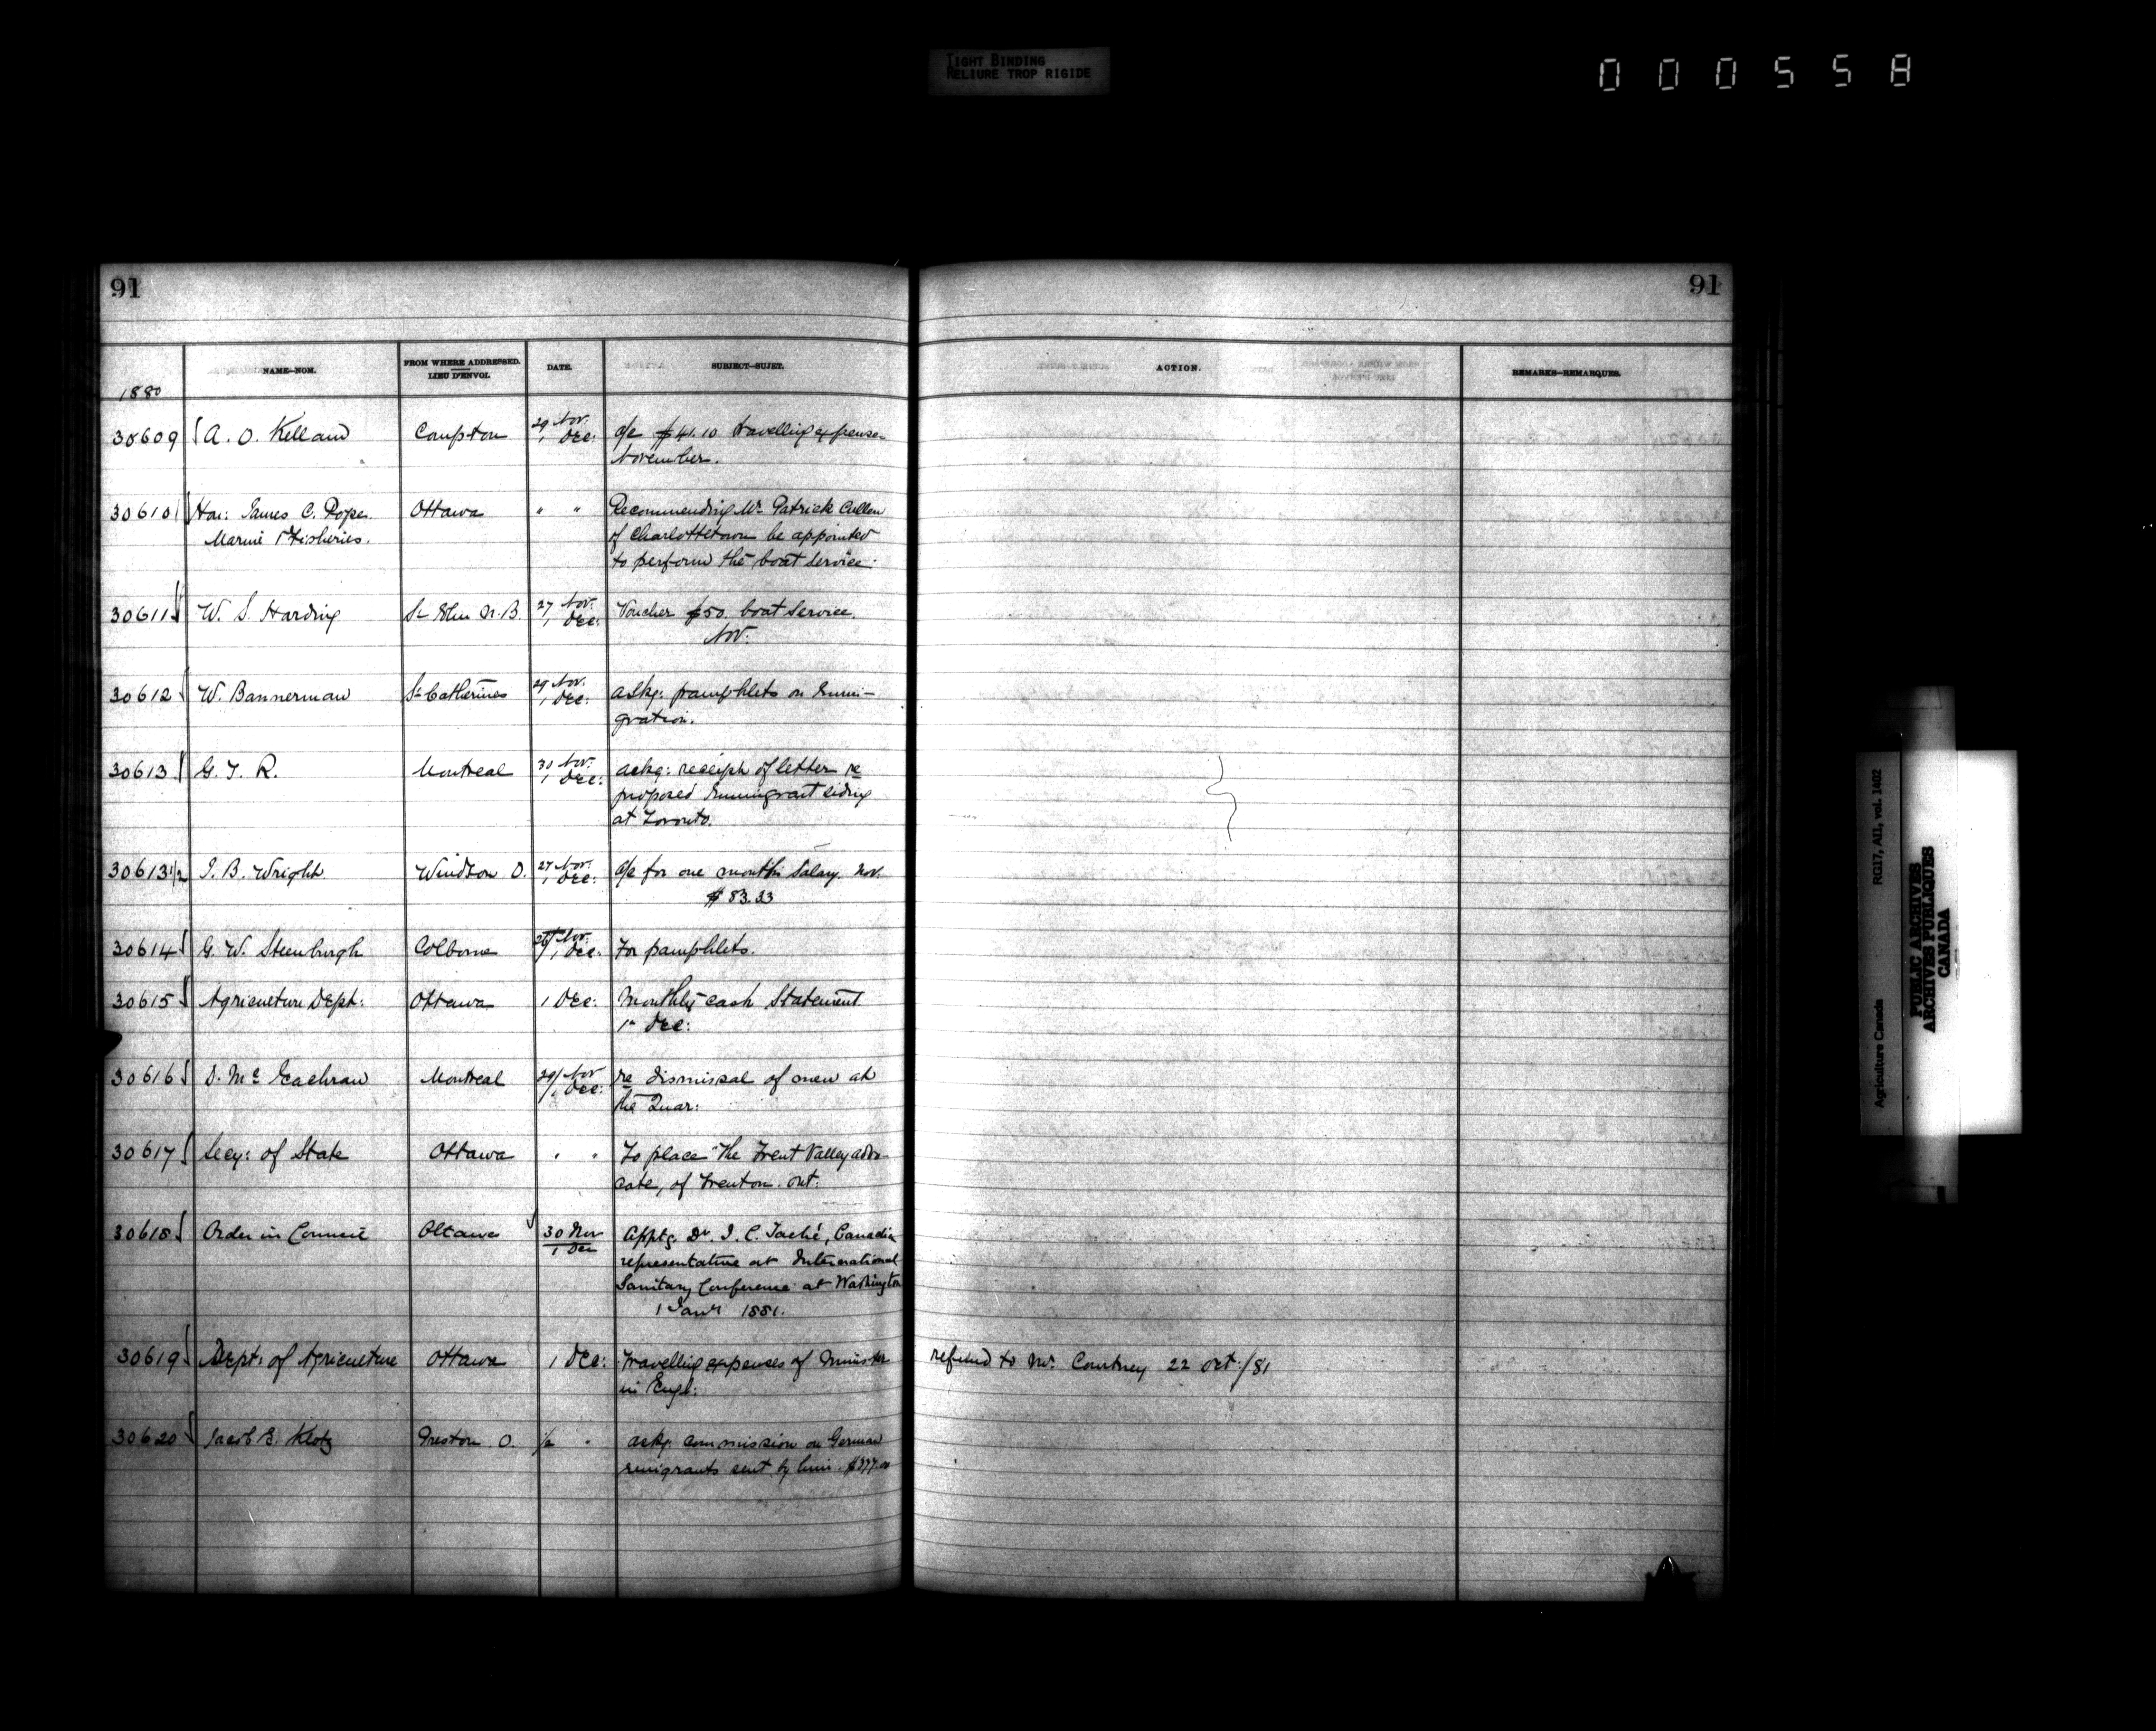 TIGHT BINDING
RELIURE TROP RIGIDE
000558
91
91
NAME—NOM.
FROM WHERE ADDRESSED.
LIEU D'ENVOI.
DATE.
SUBJECT—SUJET.
ACTION.
REMARKS—REMARQUES.
1880
30609 A. O. Kelland Compton 29 Nov. 1 Dec: a/c $41.10 travelling expenses
November.
30610 Hon: James C. Pope Ottawa " " Recommending Mr. Patrick Cullen
Marine & Fisheries. of Charlottetown be appointed
to perform the boat service.
30611 W. S. Harding St John N.B. 27 Nov. 1 Dec: Voucher $50. boat service.
Nov:
30612 W. Bannerman St Catherines 29 Nov. 1 Dec: askg: pamphlets on Immi-
gration.
30613 G. T. R. Montreal 30 Nov. 1 Dec: ackg: receipt of letter re
proposed Immigrant siding
at Toronto.
30613 1/2 J. B. Wright Windsor O. 27 Nov. 1 Dec: a/c for one month's salary. Nov.
$83.33
30614 G. W. Steenburgh Colborne Nov. 1 Dec: For pamphlets.
30615 Agriculture Dept: Ottawa 1 Dec: Monthly cash Statement
1st Dec:
30616 D. McEachran Montreal 29/ Nov 1 Dec: re dismissal of men at
the Quar:
30617 Secy: of State Ottawa " " To place "The Trent Valley advo-
cate, of Trenton. Ont:
30618 Order in Council Ottawa 30 Nov 1 Dec Apptg. Dr. J. C. Taché, Canadian
representative at International
Sanitary Conference at Washington
1 Jany 1881.
30619 Dept: of Agriculture Ottawa 1 Dec: Travelling expenses of Minister refund to Mr. Courtney 22 Oct:/81
in Engl:
30620 Jacob E. Klotz Preston O. 1/2 " askg: commission on German
emigrants sent by him. $377.00
Agriculture Canada RG17, AII, vol. 1402
PUBLIC ARCHIVES
ARCHIVES PUBLIQUES
CANADA